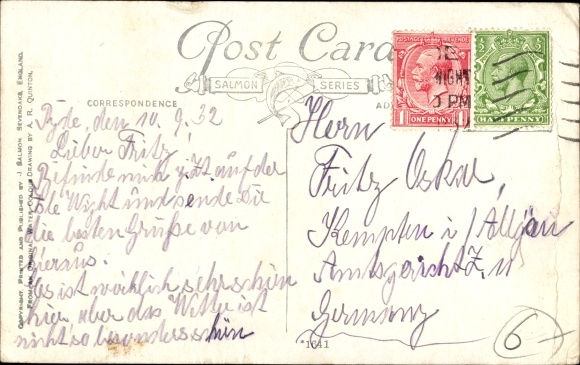 Post Card
SALMON SERIES
CORRESPONDENCE
AD
COPYRIGHT. PRINTED AND PUBLISHED BY J. SALMON SEVENOAKS, ENGLAND.
FROM AN ORIGINAL WATER COLOUR DRAWING BY A. R. QUINTON.
POSTAGE
1 ONE PENNY 1
HALFPENNY
NIGHT
PM
Ryde, den 10.9.32
Lieber Fritz,
Befinde mich z. Zt. auf der
Isle Wight und sende Dir
die besten Grüße von
hieraus.
Es ist wirklich sehr schön
hier aber das Wetter ist
nicht so besonders schön
Herrn
Fritz Oskar,
Kempten i/Allgäu
Amtsgericht Z. 11
Germany
*1641
6-